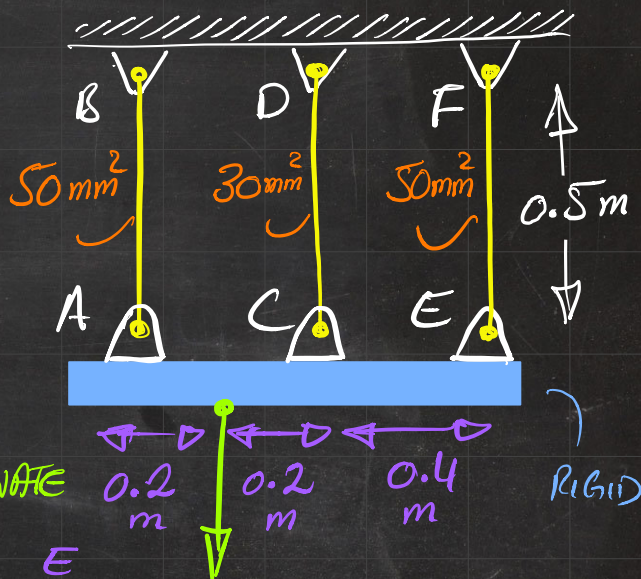 B D F
50mm² 30mm² 50mm²
0.5m
A C E
0.2 m 0.2 m 0.4 m
RIGID
E